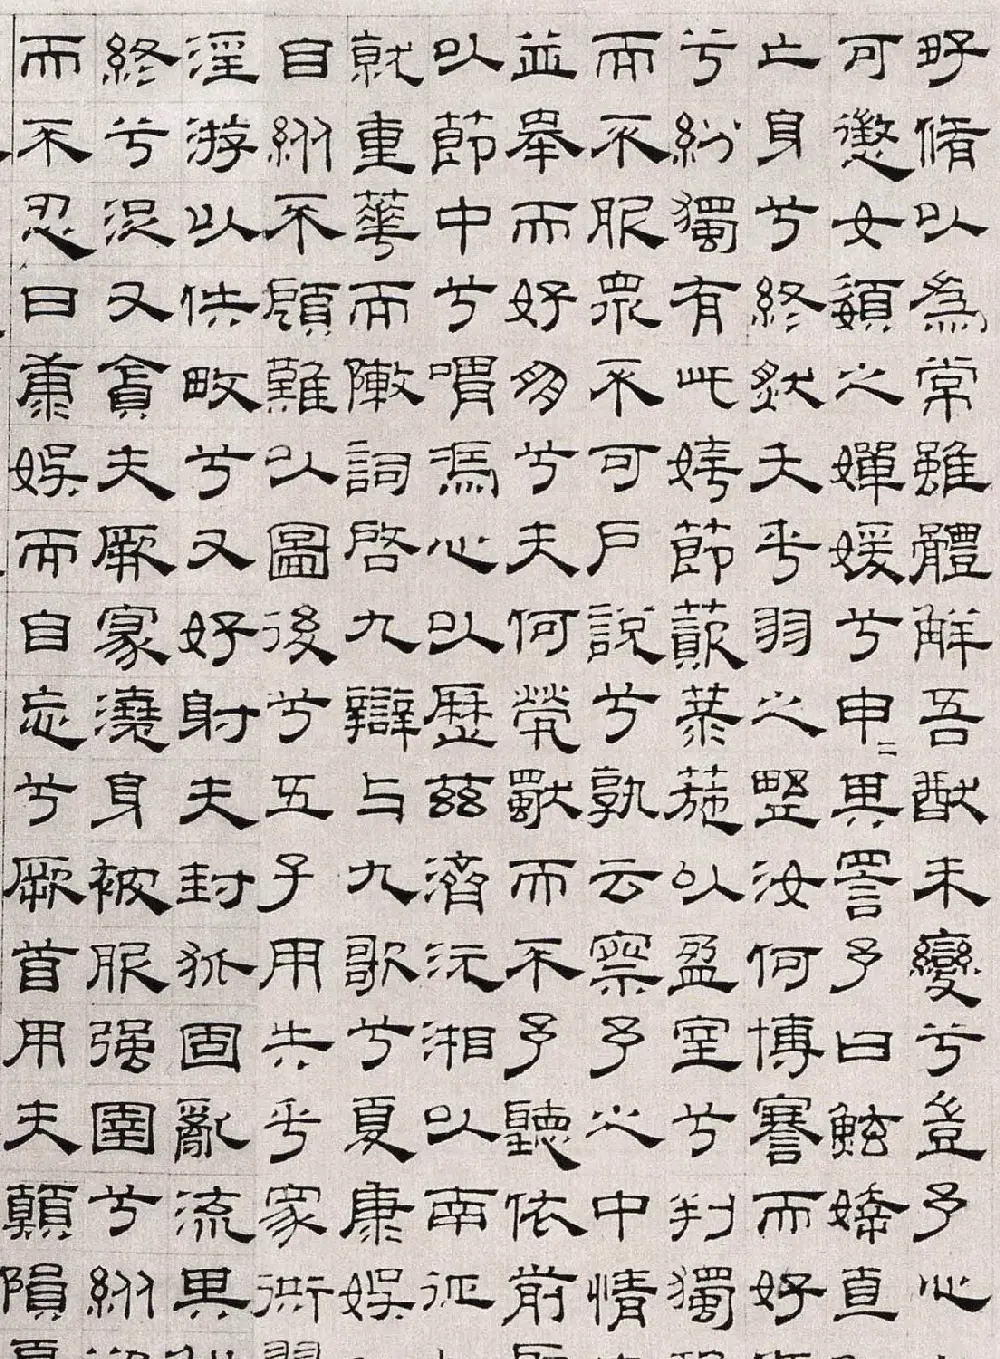 脩以為常雖體解吾猷未變兮豈予心
可懲女嬃之嬋媛兮申〻其詈予曰鮌婞直
亡身兮終然夭乎羽之野汝何博謇而好
兮紛獨有此姱節薋菉葹以盈室兮判獨
而不服眾不可戶說兮孰云察予之中情
並舉而好朋兮夫何煢獨而不予聽依前
以節中兮喟馮心以歷茲濟沅湘以南征
就重華而陳詞啓九辯与九歌兮夏康娛
自縱不顧難以圖後兮五子用失乎家衖
淫游以佚畋兮又好射夫封狐固亂流其
終兮浞又貪夫厥家澆身被服强圉兮縱
而不忍日康娛而自忘兮厥首用夫顛隕